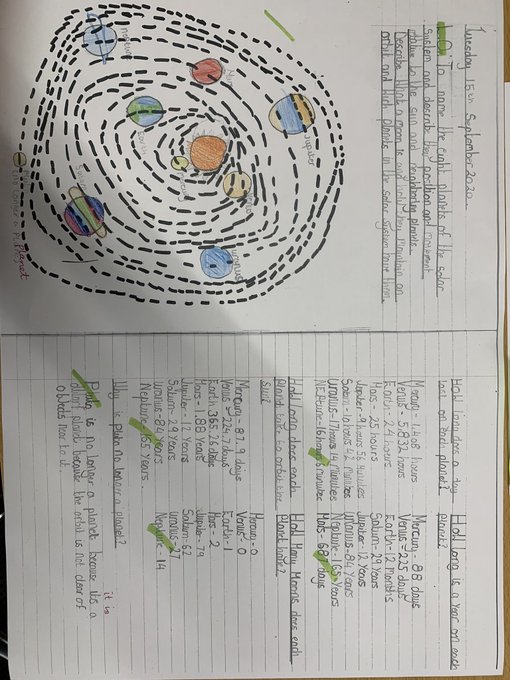 Tuesday 15th September 2020
L.O: To name the eight planets of the solar
system and describe their position and movement
relative to the sun and neighbouring planets.
Describe what a moon is and how they maintain an
orbit and which planets in the solar system have them.
neptune
Jupiter
Earth
mercury
uranus
planet
How long does a day
last on each planet?
Mercury - 1,408 hours
Venus - 5,832 hours
Earth - 24 hours
Mars - 25 hours
Jupiter - 9 hours 56 minutes
Saturn - 10 hours 42 minutes
Uranus - 17 hours 14 minutes
Neptune - 16 hours 6 minutes
How long is a year on each
planet?
Mercury - 88 days
Venus - 225 days
Earth - 12 months
Saturn - 29 Years
Jupiter - 12 Years
Uranus - 84 Years
Neptune - 165 Years
Mars - 687 days
How long does each
planet take to orbit the
sun?
Mercury - 87.9 days
Venus - 224.7 days
Earth 365.26 days
Mars - 1.88 Years
Jupiter - 12 Years
Saturn - 29 Years
uranus - 84 Years
Neptune - 165 Years.
How many Moons does each
Planet have?
Mercury - 0
Venus - 0
Earth - 1
Mars - 2
Jupiter - 79
Saturn - 62
uranus - 27
Neptune - 14
Why is pluto no longer a planet?
it is
Pluto is no longer a planet because its a
dwarf planet because the orbit is not clear of
objects near to it.